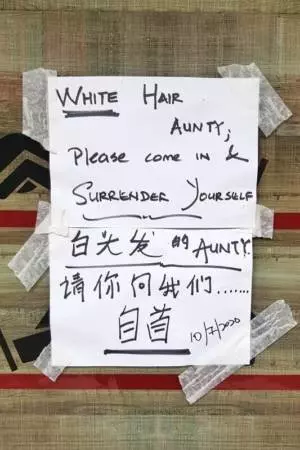 WHITE HAIR
AUNTY,
Please come in &
SURRENDER YOURSELF
白头发的AUNTY
请你向我们.......
自首
10/7/2020